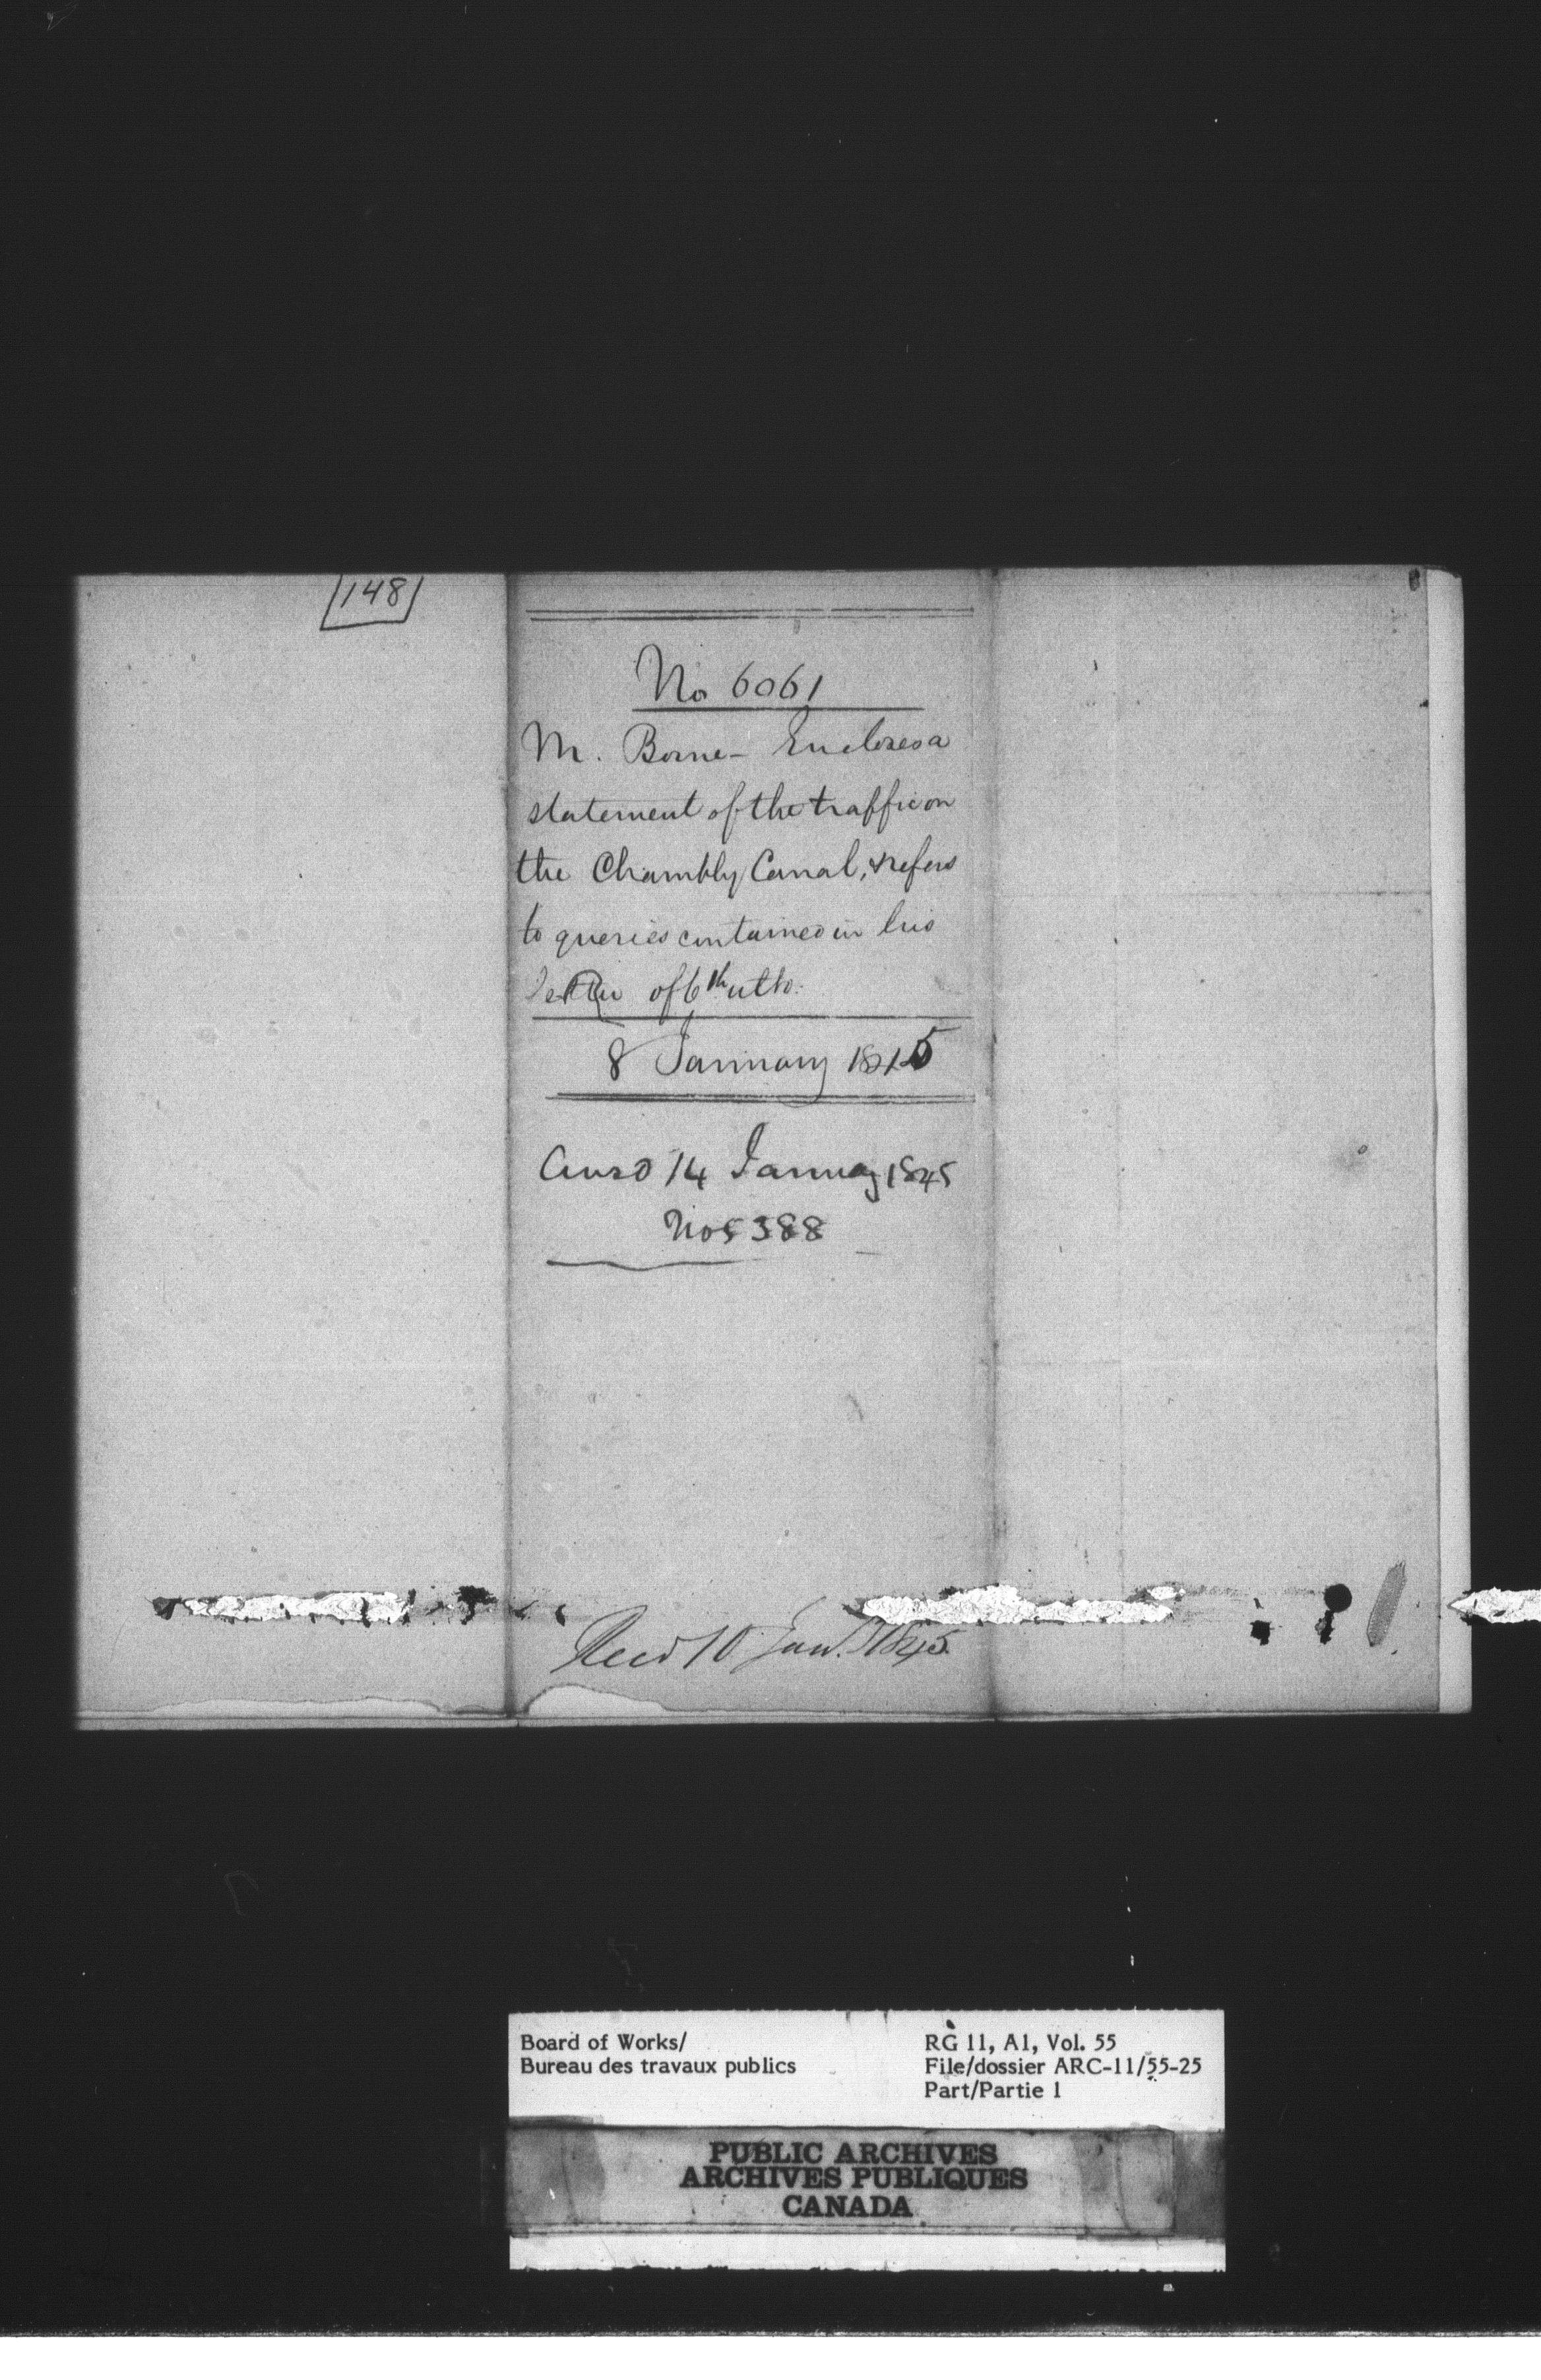 148
No 6061
M. Borne - Encloses a
statement of the traffic on
the Chambly Canal, & refers
to queries contained in his
letter of 6th ulto.
8 January 1845
Ansd 14 January 1845
No 5388
Recd 10 Jany. 1845.
Board of Works/
Bureau des travaux publics
RG 11, A1, Vol. 55
File/dossier ARC-11/55-25
Part/Partie 1
PUBLIC ARCHIVES
ARCHIVES PUBLIQUES
CANADA